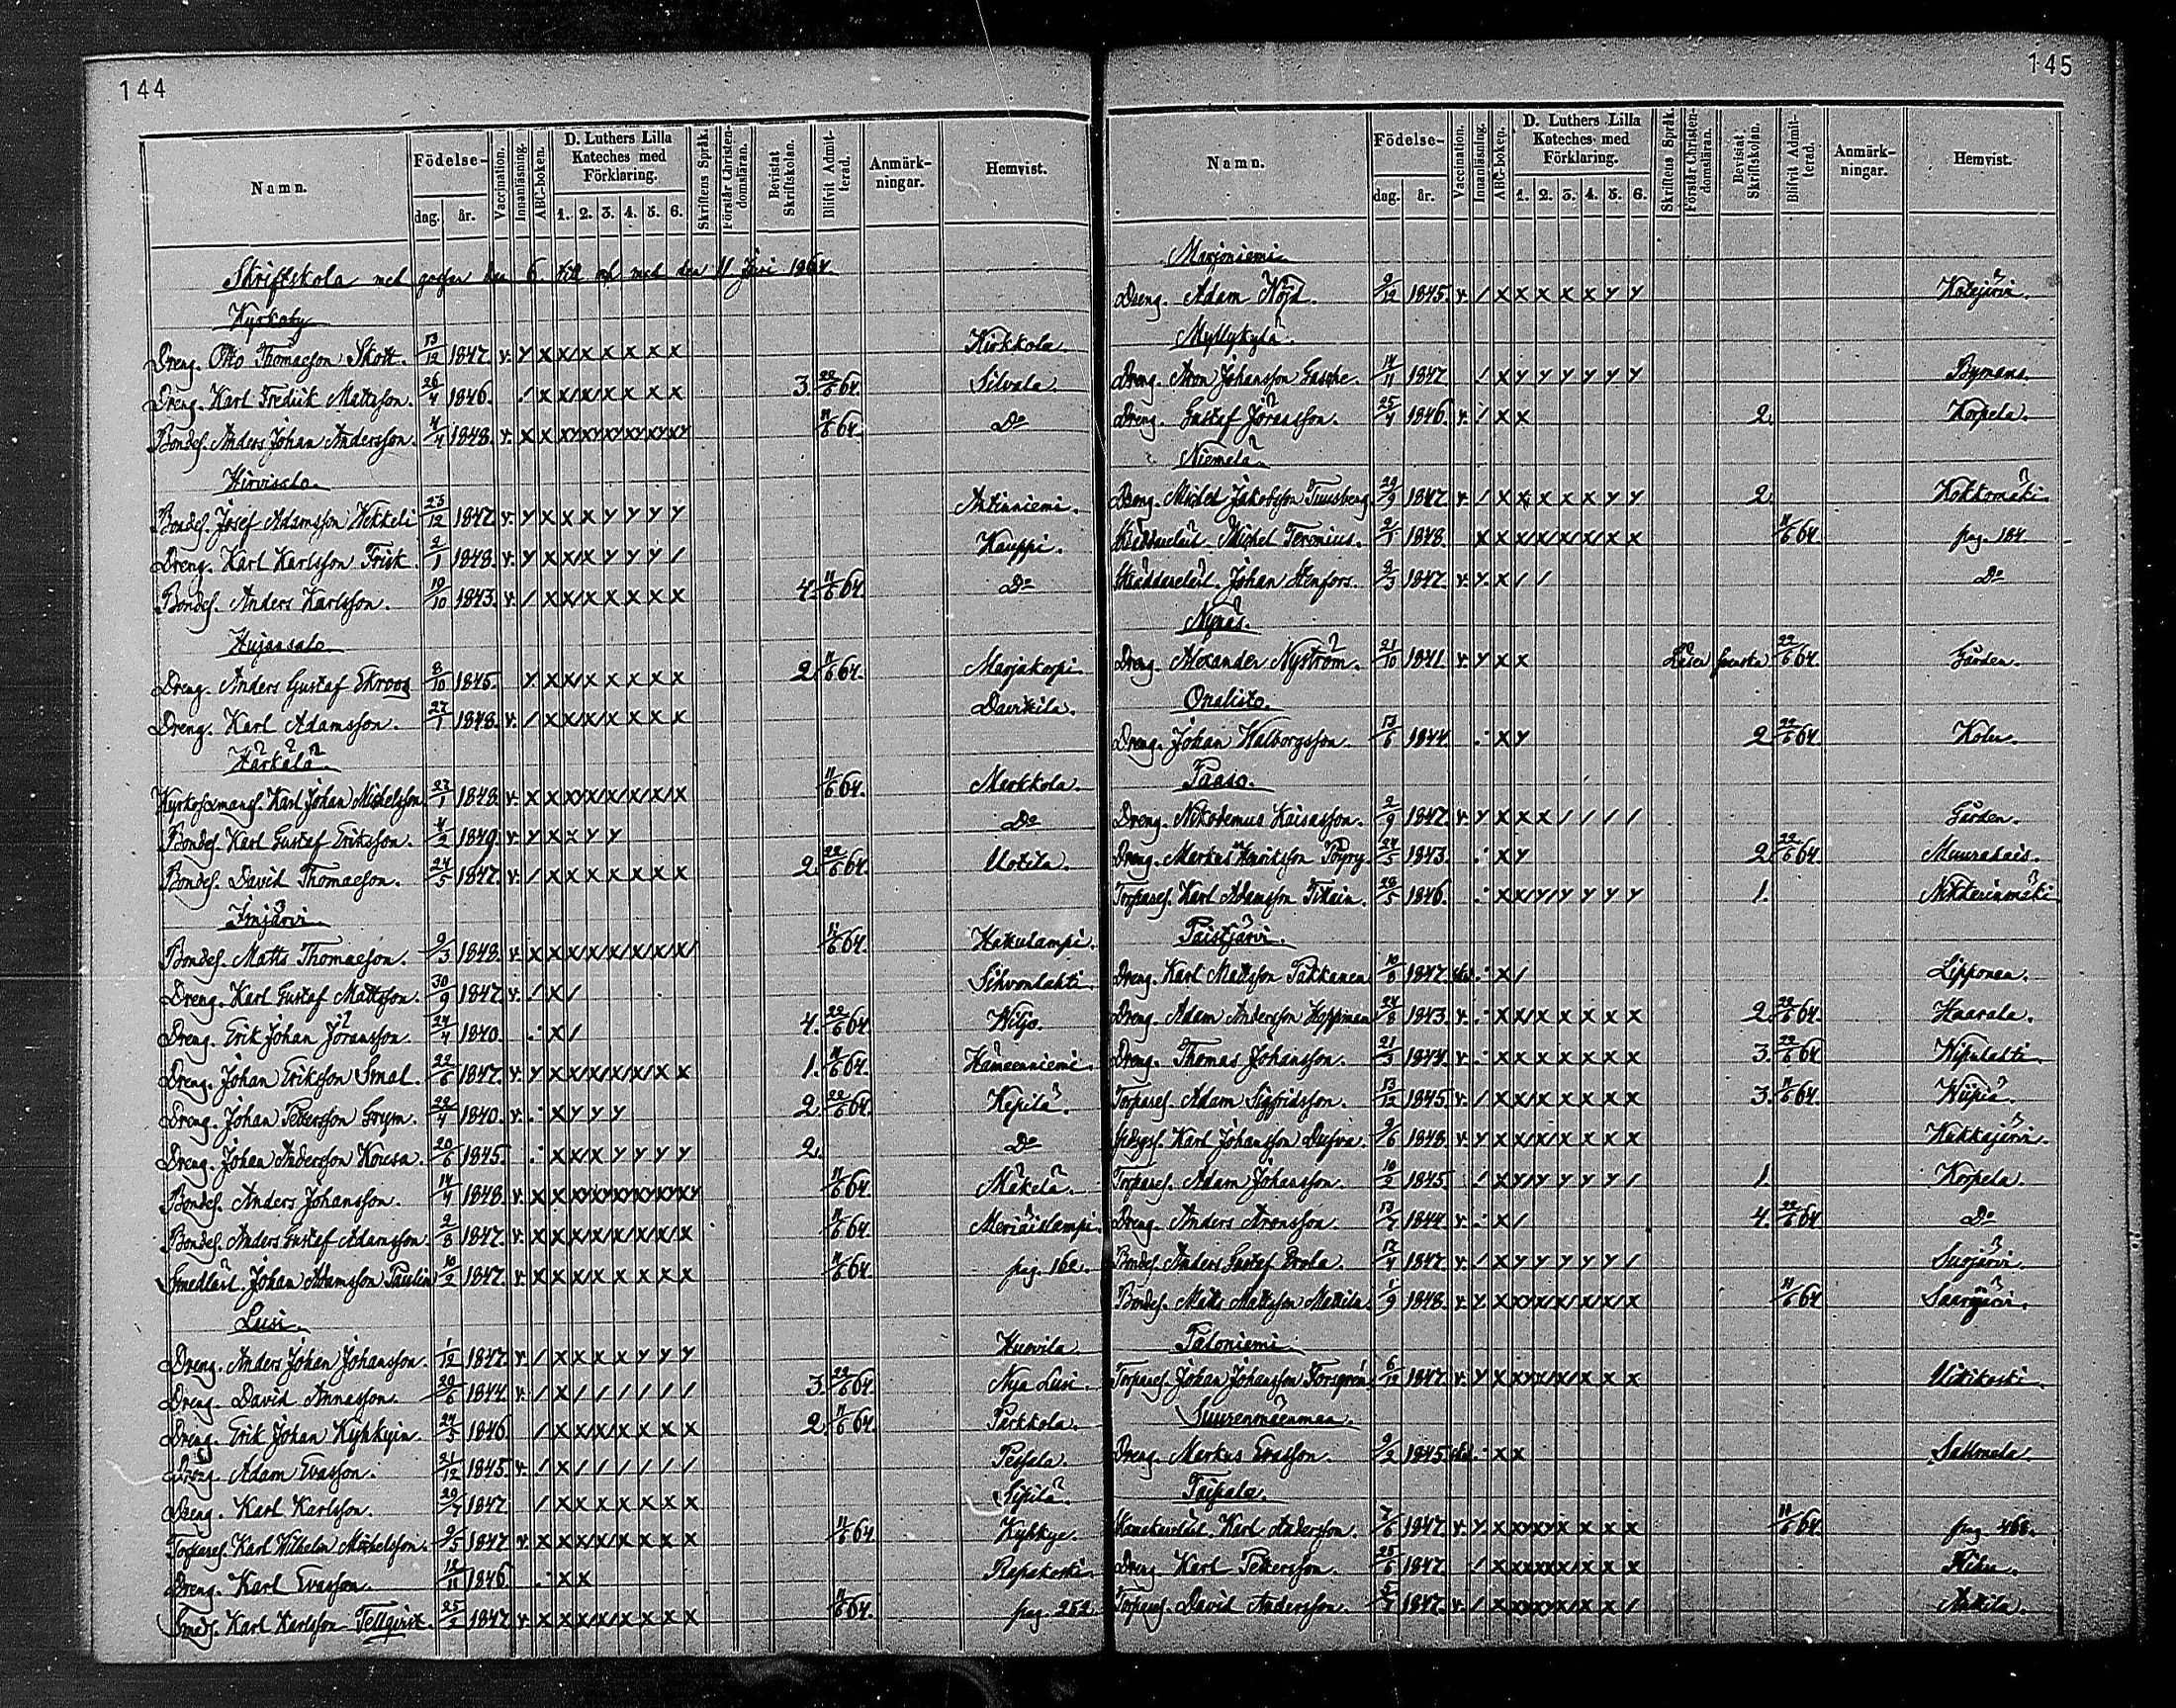 144
Namn. Födelse- dag. år. Vaccination. Innanläsning. ABC-boken. D. Luthers Lilla Kateches med Förklaring. 1. 2. 3. 4. 5. 6. Skriftens Språk. Förstår Christendomsläran. Bevistat Skriftskolan. Blifvit Admitterad. Anmärkningar. Hemvist.
Skriftskola med gossar den 6 till och med den 11 Juni 1864.
Kyrkoby
Dreng. Otto Thomasson Skott. 13/12 1847. v. y x x/x x x x x Kirkkola.
Dreng. Karl Fredrik Mattsson. 26/4 1846. / x x/x/x x x x 3. 22/6 64. Silvala.
Bondes. Anders Johan Andersson. 4/4 1848. v. x x xy xy xy xy xy xy 11/6 64. Do
Hirvisalo.
Bondes. Josef Adamsson Hekkeli 23/12 1847. v. y x x x y y y y Antinniemi.
Dreng. Karl Karlsson Frisk. 2/1 1848. v. y x x/x y y y / Kauppi.
Bondes. Anders Karlsson. 19/10 1843. v. / x x/x x x x x 4. 11/6 64. Do
Hujansalo
Dreng. Anders Gustaf Ekroos 8/10 1845. y x x/x x x x x 2 11/6 64. Marjakorpi.
Dreng. Karl Adamsson. 27/1 1848. v. / x x/x/x x x x Davikila.
Härkälä.
Kyrkovärmans. Karl Johan Michelsson. 27/1 1848. v. x x xy x/x/x/x/x 11/6 64. Markkola.
Bondes. Karl Gustaf Eriksson. 4/2 1849. v. y x x y y Do
Bondes. David Thomasson. 24/5 1847. v. / x x x x x x x 2. 22/6 64. Uotila.
Imjärvi
Bondes. Matts Thomasson. 9/3 1848. v. x x x/x/x/x/x/x/ 11/6 64. Hakulampi.
Dreng. Karl Gustaf Mattsson. 30/9 1847. v. / x / Sihvonlahti.
Dreng. Erik Johan Jöransson. 24/4 1840. . x / 4. 22/6 64. Wiljo.
Dreng. Johan Eriksson Smal. 22/6 1847. v. y x x/x/x/x/x x 1. 11/6 64. Hämeenniemi.
Dreng. Johan Pettersson Grym. 22/4 1840. v. . x y y y 2. 22/6 64. Hepilä.
Dreng. Johan Andersson Kousa. 20/6 1845. . x x x y y y y 2. Do
Bondes. Anders Johansson. 14/4 1848. v. x x xy xy xy xy xy xy 11/6 64. Mäkelä.
Bondes. Anders Gustaf Adamsson. 2/8 1847. v. x x x/x/x/x/x/x 11/6 64. Meriäislampi.
Smedlärl. Johan Adamsson Paulin 10/2 1847. v. x x x/x x x x x 11/6 64. pag. 162.
Lusi.
Dreng. Anders Johan Johansson. 1/12 1847. v. / x x x x y y y Huovila.
Dreng. David Annasson. 20/6 1844. v. / x / / / / / / 3. 22/6 64. Nya Lusi.
Dreng. Erik Johan Kyhkyin. 24/5 1846. / x x/x/x x x x 2. 11/6 64. Parkkola.
Dreng. Adam Evasson. 21/12 1845. v. / x / / / / / / Pessala.
Dreng. Karl Karlsson. 20/7 1847. / x x x x x x x Sipilä.
Torpares. Karl Wilhelm Michelsson. 9/5 1847 v. x x x x x x x x 11/6 64 Kyhkye.
Dreng. Karl Evasson. 12/11 1846. . x x Repakoski.
Smeds. Karl Karlsson Tellqvist. 25/2 1847. v. x x x x/x x x x 11/6 64. pag. 252.
145
Namn. Födelse- dag. år. Vaccination. Innanläsning. ABC-boken. D. Luthers Lilla Kateches med Förklaring. 1. 2. 3. 4. 5. 6. Skriftens Språk. Förstår Christendomsläran. Bevistat Skriftskolan. Blifvit Admitterad. Anmärkningar. Hemvist.
Marjoniemi
Dreng. Adam Nöjd. 9/12 1845. v. / x x x x x y y Kotajärvi.
Myllykylä.
Dreng. Aron Johansson Gasche. 14/11 1847. / x y y y y y y Bymans.
Dreng. Gustaf Jöransson. 25/4 1846. v. / x x 2. Korpela.
Niemelä.
Dreng. Michel Jakobsson Tuusberg 29/9 1847. v. / x x x x x y y 2. Kokkomäki.
Michel Feronius. 2/1 1848. x x x/x/x/x/x x 11/6 64. pag. 184
Skräddarelärl. Johan Stenfors. 8/3 1847. v. y. x / / Do
Nynäs.
Dreng. Alexander Nyström. 21/10 1841. v. y x x Läser svenska 22/6 64. Gården.
Onalisto.
Dreng. Johan Walborgsson. 13/6 1844. . x y 2. 22/6 64. Koler.
Paaso.
Dreng. Nikodemus Kaisasson. 2/9 1847. v. y x x x / / / / Gården.
Dreng. Markus Henriksson Pöyry. 24/5 1843. . x y 2. 22/6 64. Muurahais.
Torpares. Karl Adamsson Tikain. 28/5 1846. . x x/y/y y y y 1. Nikkarinmäki
Paistjärvi.
Dreng. Karl Mattsson Pakkanen 10/8 1847. . x / Lipponen.
Dreng. Adam Andersson Koppinen 24/8 1843. v. . x x/x x x x x 2. 22/6 64. Haarala.
Dreng. Thomas Johansson. 21/3 1844. v. . x x x x x x x 3. 22/6 64 Kipulahti.
Torpares. Adam Sigfridsson. 13/12 1845. v. / x x/x x x x x 3. 11/6 64. Wiipiä.
Karl Johansson Dufva. 9/6 1848. v. y x x/x/x x x x Kukkajärvi.
Torpares. Adam Johansson. 10/2 1845. / x y/y y y y / 1. Korpela.
Dreng. Anders Aronsson. 13/7 1844. v. . x / 4. 22/6 64 Do
Bondes. Anders Gustaf Erola. 12/4 1847. v. / x y y y y y / Susjärvi.
Bondes. Matts Mattsson Mattila. 1/9 1848. v. y. x xy x/x/x/x/x 11/6 64 Saarijärvi.
Paloniemi.
Torpares. Johan Johansson Forsgrén 6/12 1847. v. y x xy xy/x/x x x Uitikoski.
Suurenmäenmaa.
Dreng. Markus Evasson. 9/2 1845. . x x Salmela.
Taipale.
Karl Andersson. 7/6 1847. v. y. x xy xy x x x x 11/6 64. pag. 468.
Dreng. Karl Pettersson. 25/6 1847. / x x x x/x x x Kiku.
Torpares. David Andersson. 5/7 1847. v. / x xy xy x/x x / Anttila.